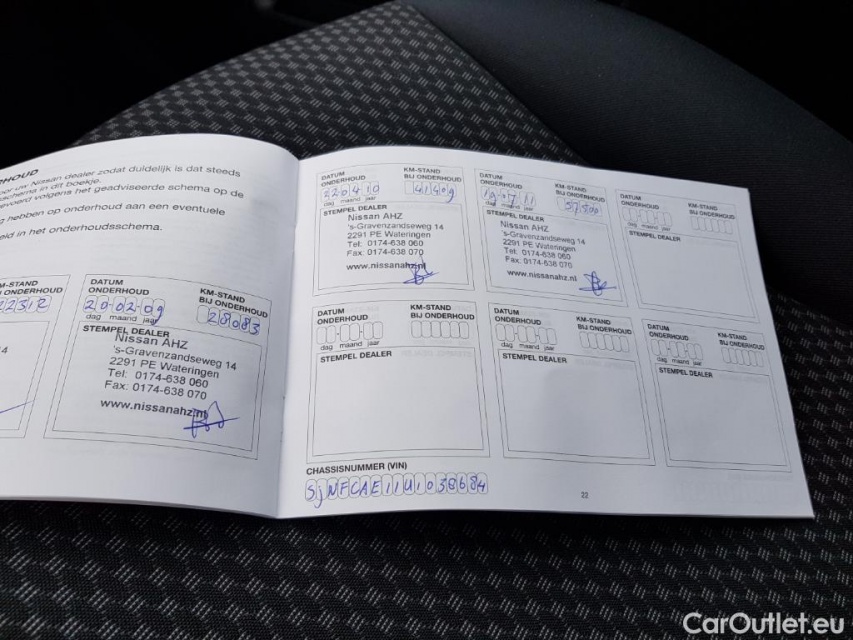 RHOUD
oor uw Nissan dealer zodat duidelijk is dat steeds
schema in dit boekje.
evoerd volgens het geadviseerde schema op de
g hebben op onderhoud aan een eventuele
eld in het onderhoudsschema.
M-STAND
J ONDERHOUD
22312
DATUM
ONDERHOUD
KM-STAND
BIJ ONDERHOUD
20-02-09
28083
dag maand jaar
STEMPEL DEALER
Nissan AHZ
's-Gravenzandseweg 14
2291 PE Wateringen
Tel: 0174-638 060
Fax: 0174-638 070
www.nissanahz.nl
4
DATUM
ONDERHOUD
KM-STAND
BIJ ONDERHOUD
220410
41409
dag maand jaar
STEMPEL DEALER
Nissan AHZ
's-Gravenzandseweg 14
2291 PE Wateringen
Tel: 0174-638 060
Fax: 0174-638 070
www.nissanahz.nl
DATUM
ONDERHOUD
KM-STAND
BIJ ONDERHOUD
19-07-11
57500
dag maand jaar
STEMPEL DEALER
Nissan AHZ
's-Gravenzandseweg 14
2291 PE Wateringen
Tel: 0174-638 060
Fax: 0174-638 070
www.nissanahz.nl
DATUM
ONDERHOUD
KM-STAND
BIJ ONDERHOUD
dag maand jaar
STEMPEL DEALER
DATUM
ONDERHOUD
KM-STAND
BIJ ONDERHOUD
dag maand jaar
STEMPEL DEALER
DATUM
ONDERHOUD
KM-STAND
BIJ ONDERHOUD
dag maand jaar
STEMPEL DEALER
DATUM
ONDERHOUD
KM-STAND
BIJ ONDERHOUD
dag maand jaar
STEMPEL DEALER
CHASSISNUMMER (VIN)
SjNFCAE11U1038684
22
CarOutlet.eu